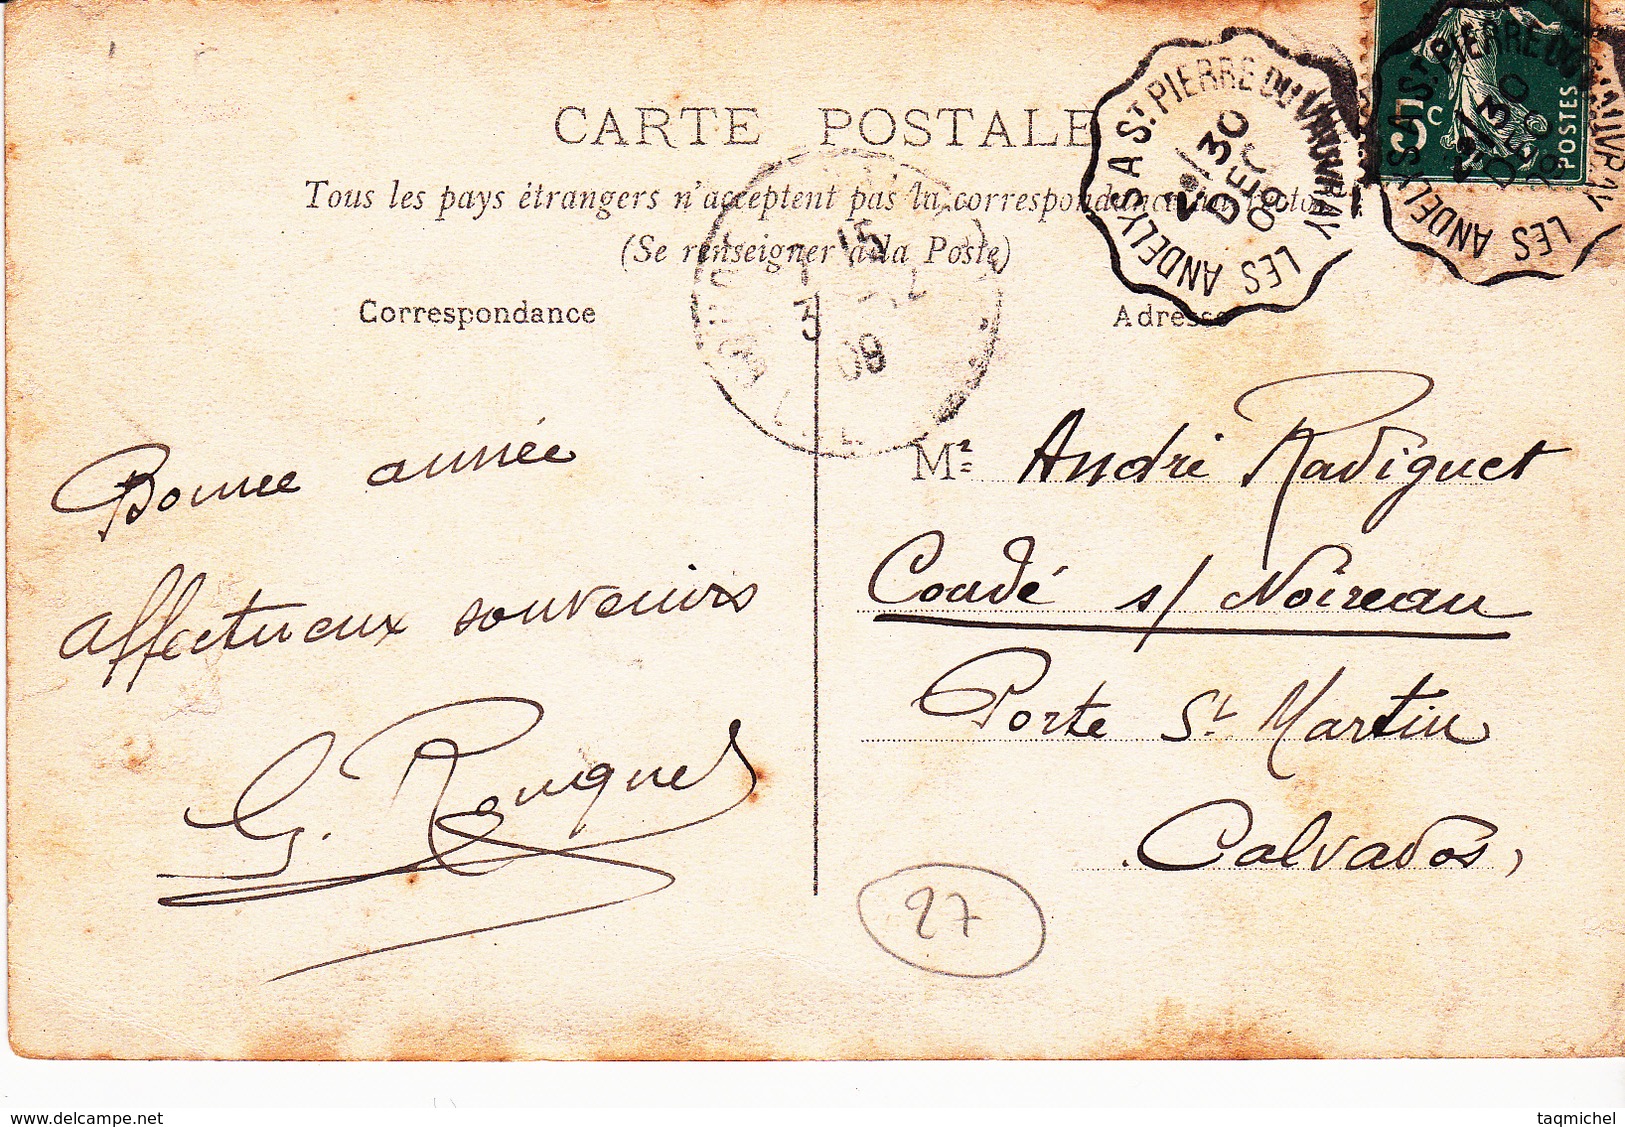 CARTE POSTALE
Tous les pays étrangers n'acceptent pas la correspondance au recto
(Se renseigner à la Poste)
Correspondance
Adresse
LES ANDELYS A ST PIERRE DU VAUVRAY
2º/30
DEC
09
5c
POSTES
LES ANDELYS A ST PIERRE DU VAUVRAY
2º/30
DEC
09
15
3
09
Bonne année
affectueux souvenirs
Mr André Radiguet
Condé s/ Noireau
Porte St Martin
Calvados,
27
www.delcampe.net
taqmichel